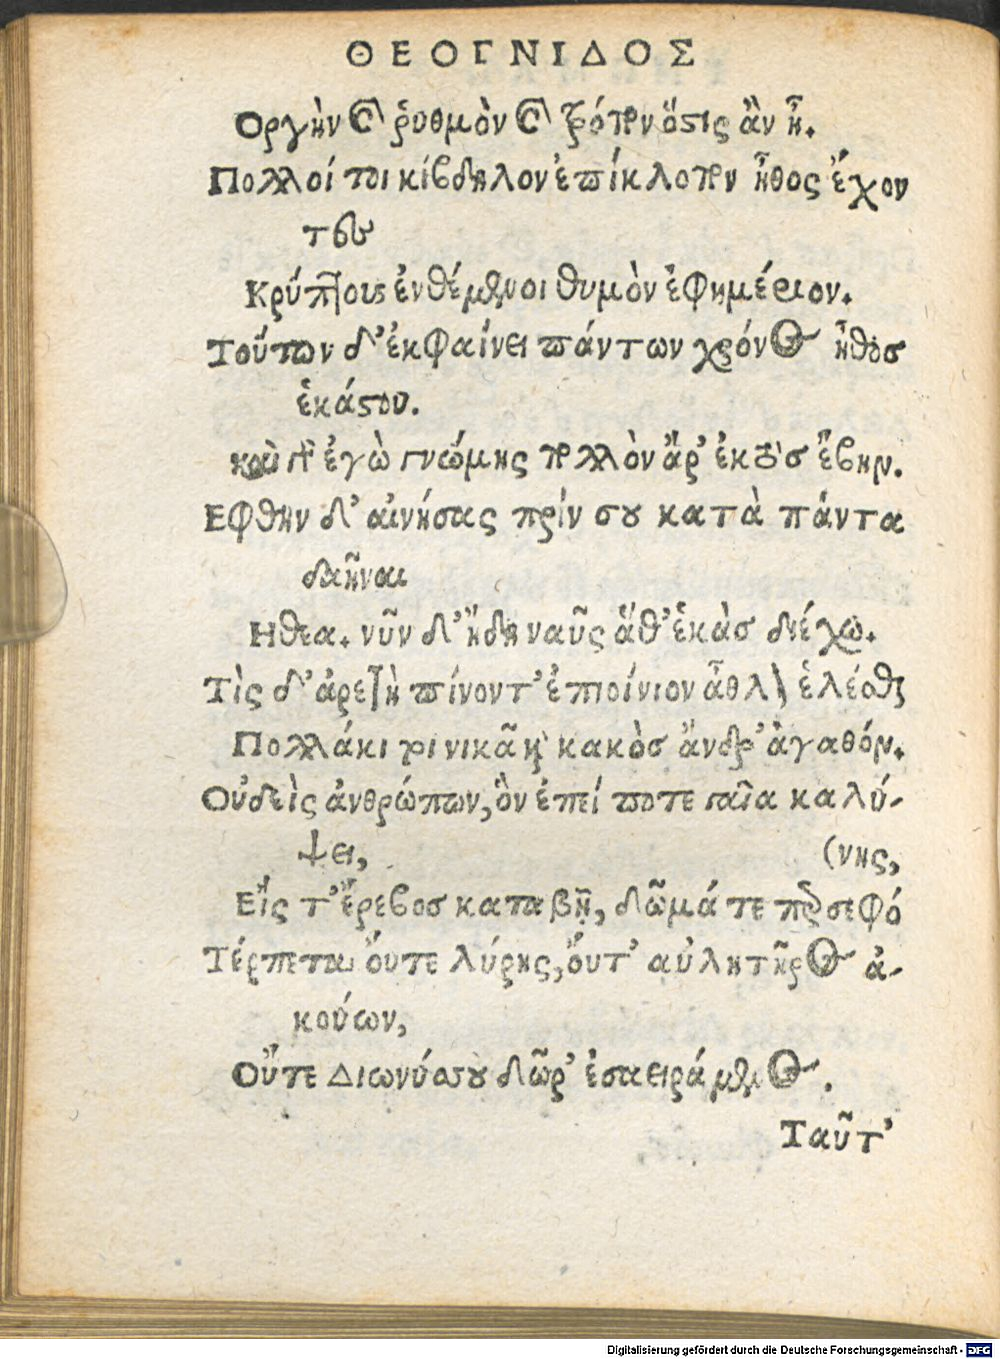 ΘΕΟΓΝΙΔΟΣ
Οργὴν καὶ ῥυθμὸν καὶ τρόπον ὅστις ἂν ᾖ.
Πολλοί τοι κίβδηλον ἐπίκλοπον ἦθος ἔχον
τες
Κρύπτους ἐνθέμενοι θυμὸν ἐφημέριον.
Τούτων δ' ἐκφαίνει πάντων χρόνος ἦθος
ἑκάστου.
καὶ γὰρ ἐγὼ γνώμης πολλὸν ἄρ' ἐκτὸς ἔβην.
Εφθην δ' αἰνήσας πρίν σου κατὰ πάντα
δαῆναι
Ηθεα. νῦν δ' ἤδη ναῦς ἅθ' ἑκὰς διέχω.
Τὶς δ' ἀρετὴ πίνοντ' ἐπιοίνιον ἆθλον ἑλέσθαι
Πολλάκι τοι νικᾶ καὶ κακὸς ἄνδρ' ἀγαθόν.
Οὐδεὶς ἀνθρώπων, ὃν ἐπεί ποτε γαῖα καλύ-
ψει, (νης,
Εἴς τ' ἔρεβος καταβῇ, δῶμά τε περσεφό
Τέρπεται οὔτε λύρης, οὔτ' αὐλητῆρος ἀ-
κούων,
Οὔτε Διωνύσου δῶρ' ἐσαειράμενος.
Ταῦτ'
Digitalisierung gefördert durch die Deutsche Forschungsgemeinschaft - DFG